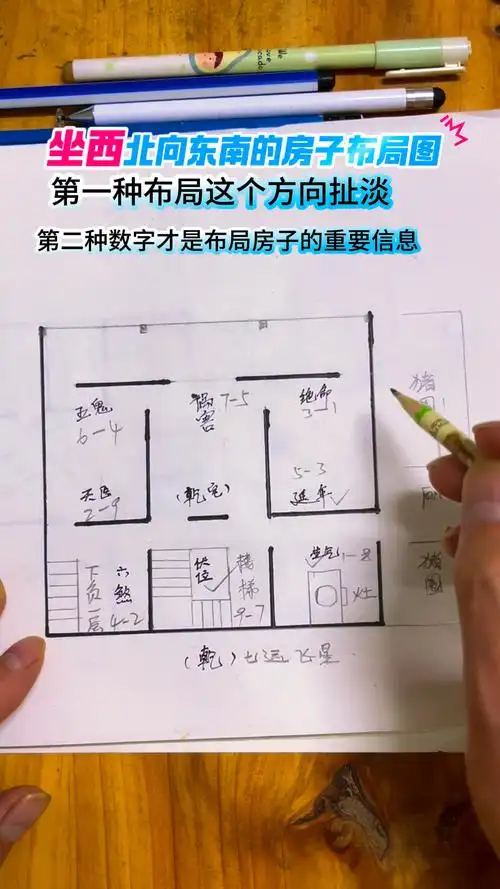 坐西北向东南的房子布局图
第一种布局这个方向扯淡
第二种数字才是布局房子的重要信息
五鬼
6-4
祸害
7-5
绝命
3-1
猪圈
天医
2-9
(乾宅)
5-3
延年
下负一层
六煞
4-2
伏位
楼梯
9-7
生气
1-8
灶
猪圈
(乾)七运飞星